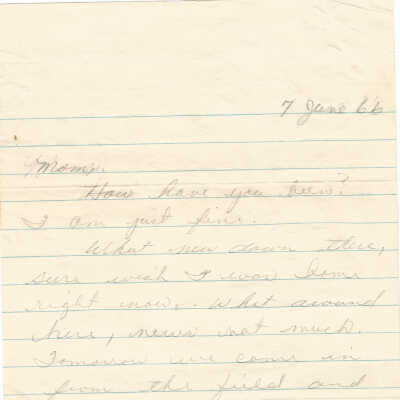 7 June 66
Moms.
How have you been?
I am just fine.
What new down there,
sure wish I was home
right now. What around
here, news not much.
Tomorrow we come in
from the field and